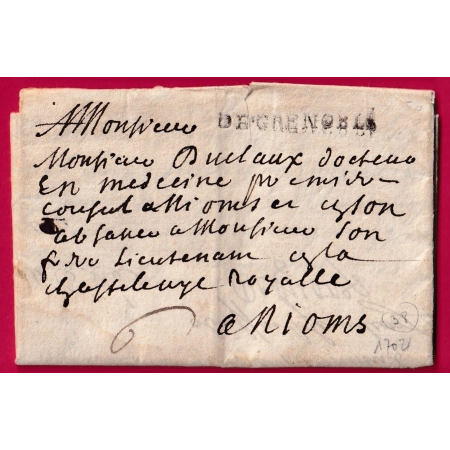 A Monsieur
DE GRENOBLE
Monsieur Duclaux docteur
En medecine premier
consul a Nioms et en son
absance a Monsieur son
frere Lieutenam en la
chastelenye royalle
6
a Nioms
38
1702